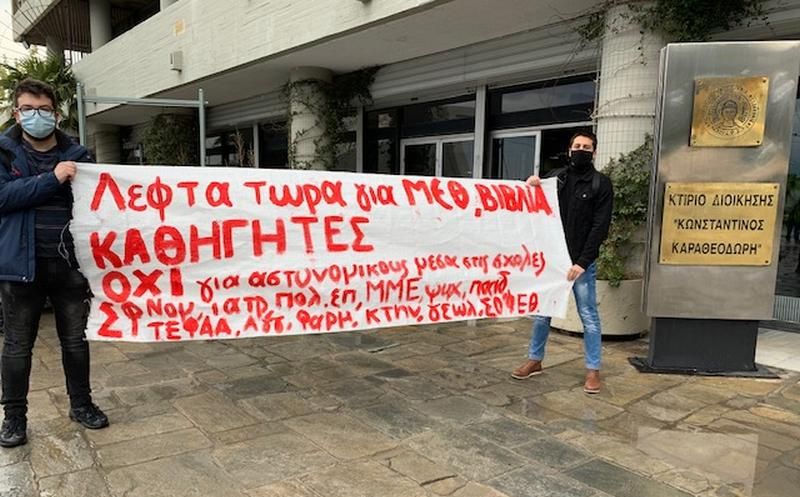 Λεφτα τωρα για ΜΕΘ, ΒΙΒΛΙΑ
ΚΑΘΗΓΗΤΕΣ
ΟΧΙ για αστυνομικους μεσα στις σχολες
ΣΦ Νομ, ιατρ, Πολ. επ, ΜΜΕ, ψυχ, παιδ,
ΤΕΦΑΑ, Αγγ, Φαρμ, κτην, γεωλ, ΣΘΕ
ΚΤΙΡΙΟ ΔΙΟΙΚΗΣΗΣ
"ΚΩΝΣΤΑΝΤΙΝΟΣ
ΚΑΡΑΘΕΟΔΩΡΗ"